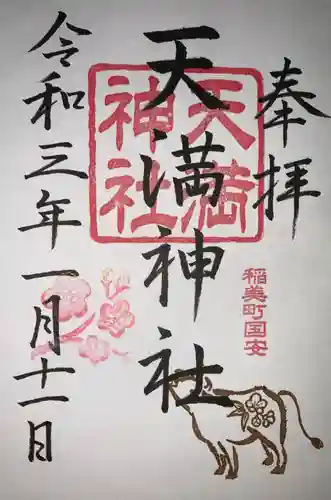 奉拝
天満神社
令和三年一月十一日
天満
神社
稲美町国安